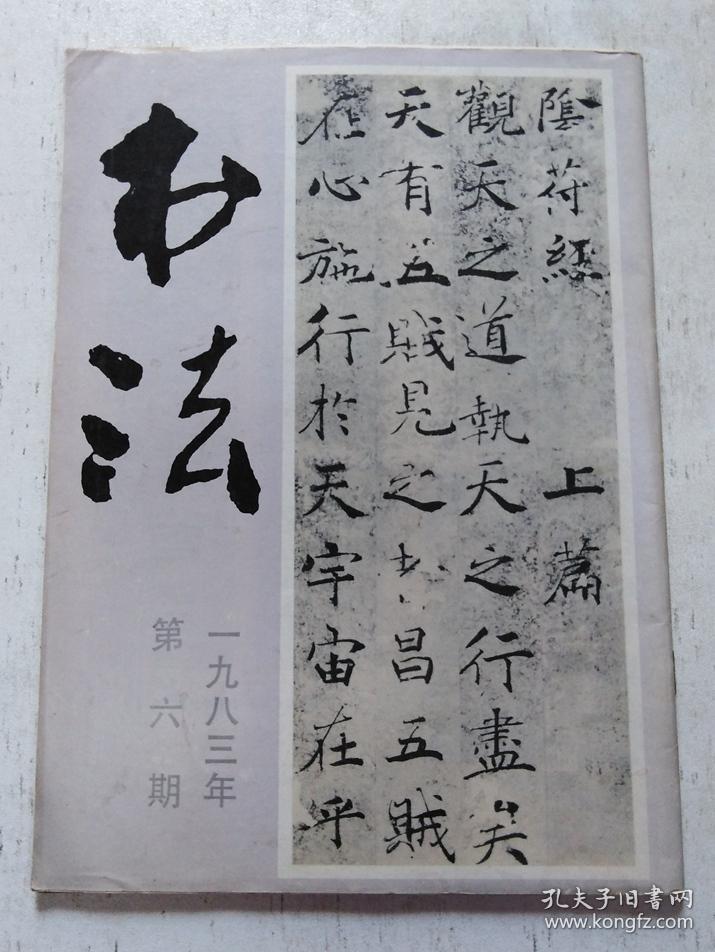 书法
一九八三年
第六期
陰符經 上篇
觀天之道執天之行盡矣
天有五賊見之者昌五賊
在心施行於天宇宙在乎
孔夫子旧书网
www.kongfz.com